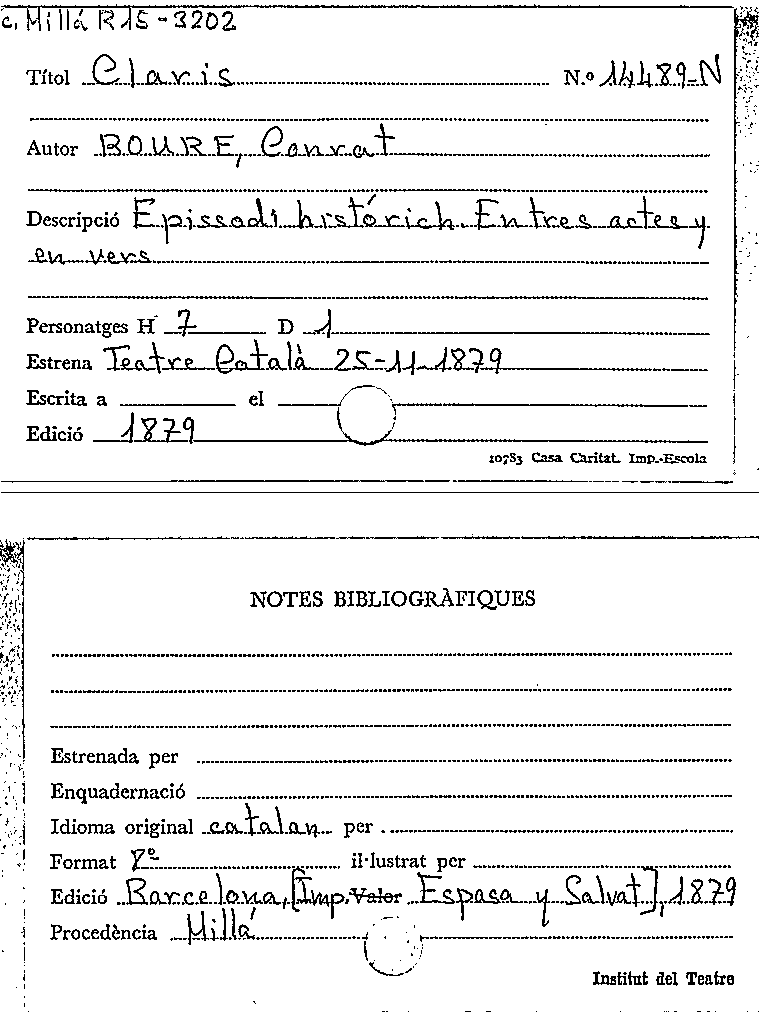 c. Millá R 15-3202
Títol Claris N.º 14489-N
Autor ROURE, Conrat
Descripció Epissodi histórich. En tres actes y
en vers
Personatges H 7 D 1
Estrena Teatre Català 25-11-1879
Escrita a el
Edició 1879
10783 Casa Caritat. Imp.-Escola
NOTES BIBLIOGRÀFIQUES
Estrenada per
Enquadernació
Idioma original catalan per
Format 8º il·lustrat per
Edició Barcelona, [Imp. Valor Espasa y Salvat], 1879
Procedència Millá
Institut del Teatre